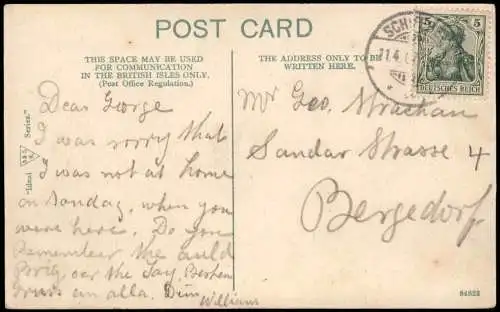 POST CARD
THIS SPACE MAY BE USED
FOR COMMUNICATION
IN THE BRITISH ISLES ONLY.
(Post Office Regulation.)
THE ADDRESS ONLY TO BE
WRITTEN HERE.
5 5
DEUTSCHES REICH
11.4
"Ideal Series."
Dear George
I was sorry that
I was not at home
on Sonday, when you
were here. Do you
Remember the auld
Brig, oer the Tay,
Gruss an alla. Dein
William
Mr Geo. Strachan
Sandar Strasse 4
Bergedorf
84822